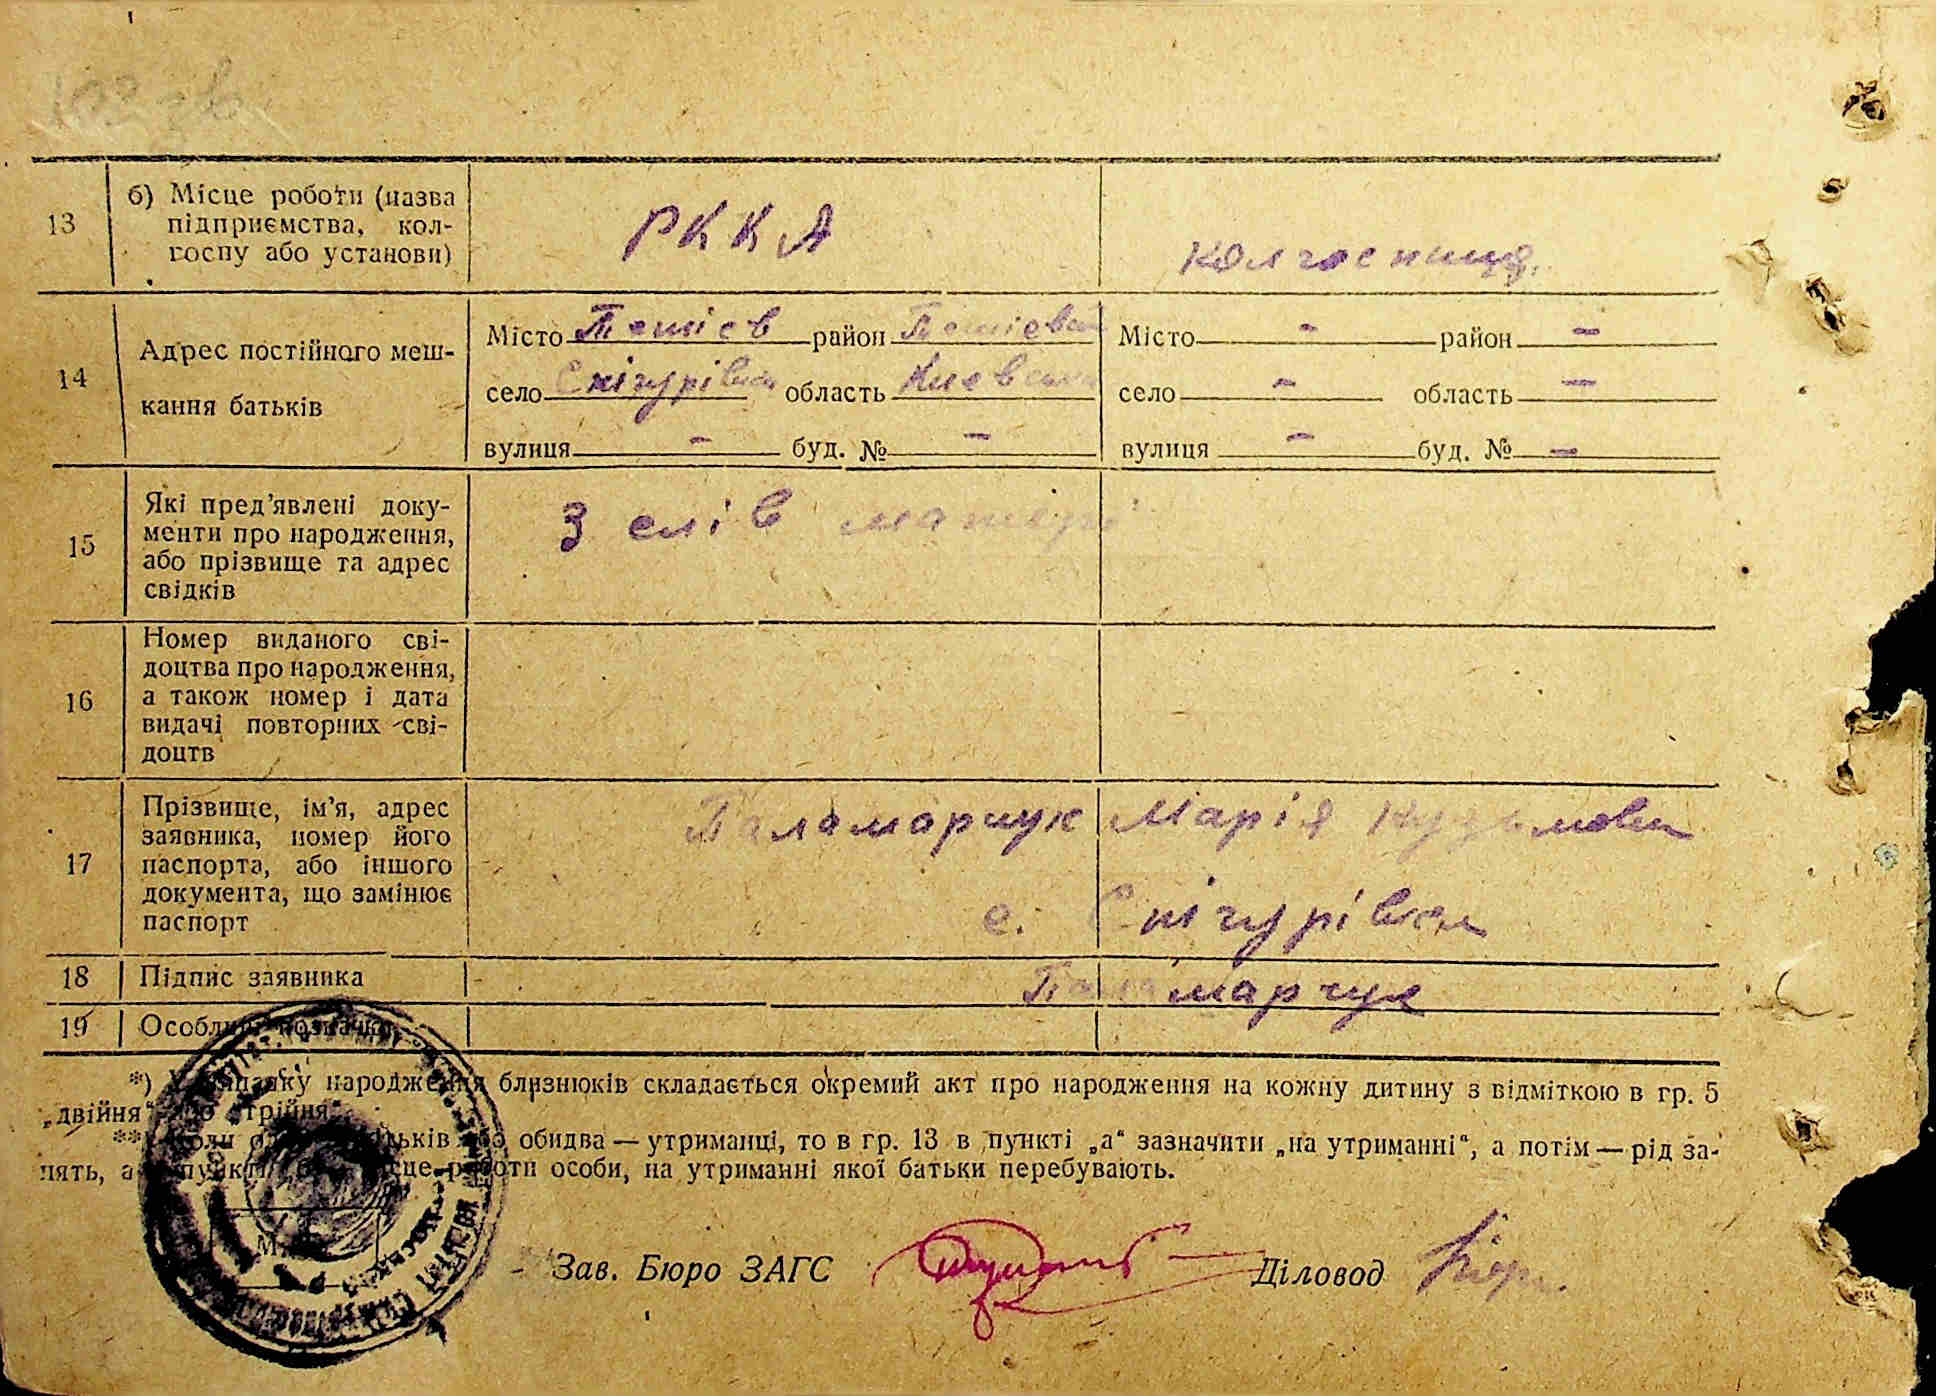 13
б) Місце роботи (назва
підприємства, кол-
госпу або установи)
РККА
колгоспниця
14
Адрес постійного меш-
кання батьків
Місто Тетієв район Тетієвськ
село Снігурівка область Київська
вулиця - буд. № -
Місто - район -
село - область -
вулиця - буд. № -
15
Які пред'явлені доку-
менти про народження,
або прізвище та адрес
свідків
З слів матері
16
Номер виданого сві-
доцтва про народження,
а також номер і дата
видачі повторних сві-
доцтв
17
Прізвище, ім'я, адрес
заявника, номер його
паспорта, або іншого
документа, що замінює
паспорт
Паламарчук Марія Кузьмовн
с. Снігурівка
18
Підпис заявника
Паламарчук
19
Особливі позначки
*) У випадку народження близнюків складається окремий акт про народження на кожну дитину з відміткою в гр. 5
„двійня" або „трійня"
**) Коли один з батьків або обидва — утриманці, то в гр. 13 в пункті „а" зазначити „на утриманні", а потім — рід за-
нять, а в пункті „б" місце роботи особи, на утриманні якої батьки перебувають.
М. П.
Зав. Бюро ЗАГС
Діловод